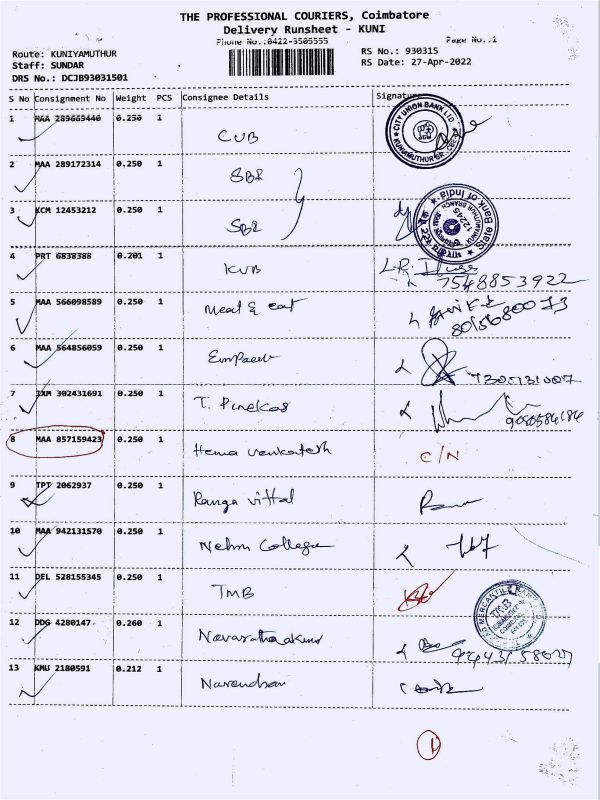 THE PROFESSIONAL COURIERS, Coimbatore
Delivery Runsheet - KUNI
Phone No.:0422-3505555 Page No.:1
Route: KUNIYAMUTHUR RS No.: 930315
Staff: SUNDAR RS Date: 27-Apr-2022
DRS No.: DCJB93031501
S No Consignment No Weight PCS Consignee Details Signature
1 MAA 289669440 0.250 1 CUB
CITY UNION BANK LTD. KUNIYAMUTHUR
2 MAA 289172314 0.250 1 SBI
3 KCM 12453212 0.250 1 SBI
State Bank of India 12245 KUNIYAMUTHUR BRANCH
4 PRT 6838388 0.201 1 KUB
7548853922
5 MAA 566098589 0.250 1 Meat & eat
6 MAA 564856059 0.250 1
7 302431691 0.250 1 T. Pinekas
8 MAA 857159423 0.250 1 Hema Venkatesh C/N
9 TPT 2062937 0.250 1 Ranga Vittal
10 MAA 942131570 0.250 1 Nehru College
11 DEL 528155345 0.250 1 TMB
TMB
12 DDG 4280147 0.260 1
13 KMU 2180591 0.212 1 Narendran
1